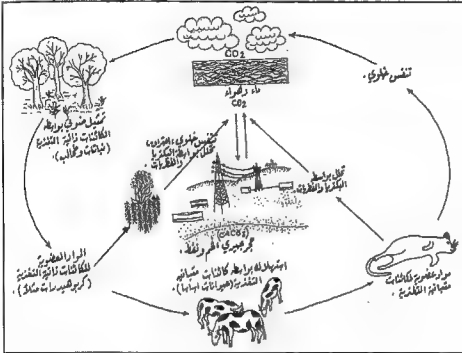 CO2
ماء وهواء
CO2
تنفس خلوي.
تمثيل ضوئي بواسطة
الكائنات ذاتية التغذية
(نباتات وطحالب).
تنفس خلوي، احتراق،
تحلل بواسطة البكتريا
والفطريات.
تحلل بواسطة
البكتريا والفطريات.
حجر جيري، فحم ونفط.
(CaCO3)
المواد العضوية
للكائنات ذاتية التغذية
(كربوهيدرات مثلاً).
استهلاك بواسطة كائنات
التغذية (حيوانات
مواد عضوية لكائنات
التغذية.